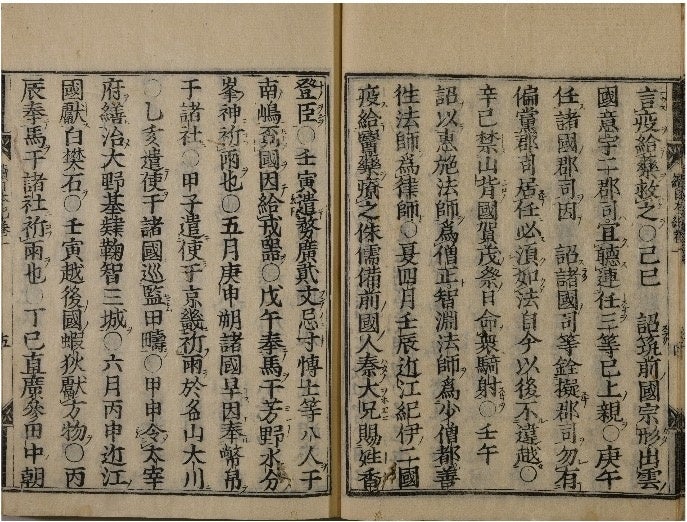 言疫給藥救之〇己巳　詔筑前國宗形出雲
國意宇二郡司宜聽連任三等已上親〇庚午
任諸國郡司因　詔諸國司等銓擬郡司勿有
偏黨郡司居任必須如法自今以後不違越〇
辛巳禁山背國賀茂祭日命衆騎射〇壬午
詔以惠施法師爲僧正智淵法師爲少僧都善
往法師爲律師〇夏四月壬辰近江紀伊二國
疫給醫藥療之侏儒備前國人秦大兄賜姓香
登臣〇壬寅遣務廣貳文忌寸博士等八人于
南嶋覓國因給戎器〇戊午奉馬于芳野水分
峯神祈雨也〇五月庚申朔諸國旱因奉幣帛
于諸社〇甲子遣使于京畿祈雨於名山大川
〇乙亥遣使于諸國巡監田疇〇甲申令大宰
府繕治大野基肄鞠智三城〇六月丙申近江
國獻白樊石〇壬寅越後國蝦狄獻方物〇丙
辰奉馬于諸社祈雨也〇丁巳直廣參田中朝
五